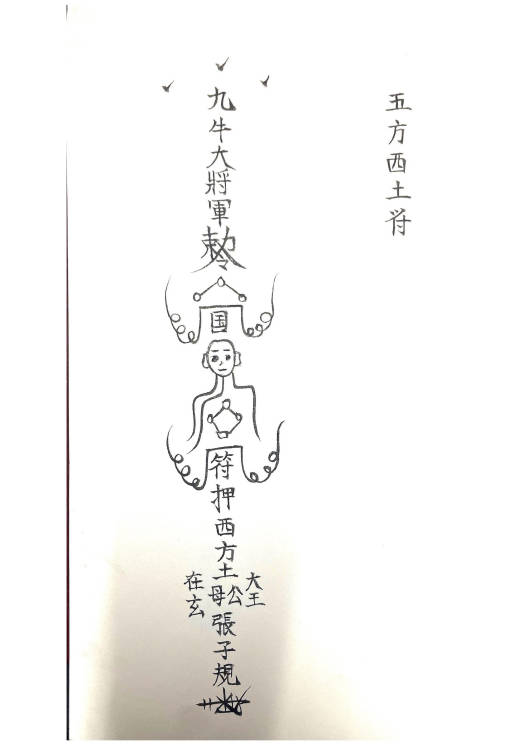 五方西土符
九牛大將軍
敕令
国
符
押西方土
公母
張子規
大王
在玄